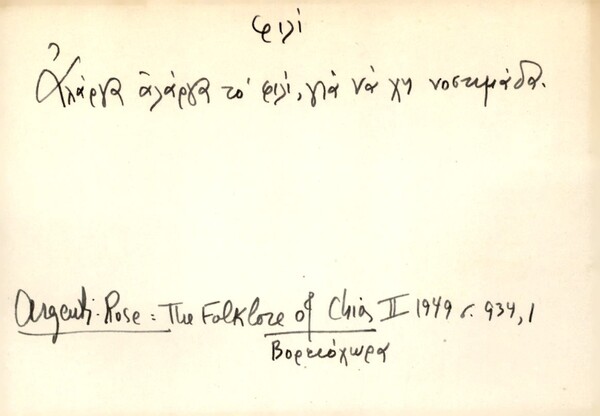 φιλί
Ἀλάργα ἀλάργα το φιλί, γιὰ νὰ χη νοστιμάδα.
Argenti-Rose: The Folklore of Chios II 1949 σ. 934,1
Βορειόχωρα